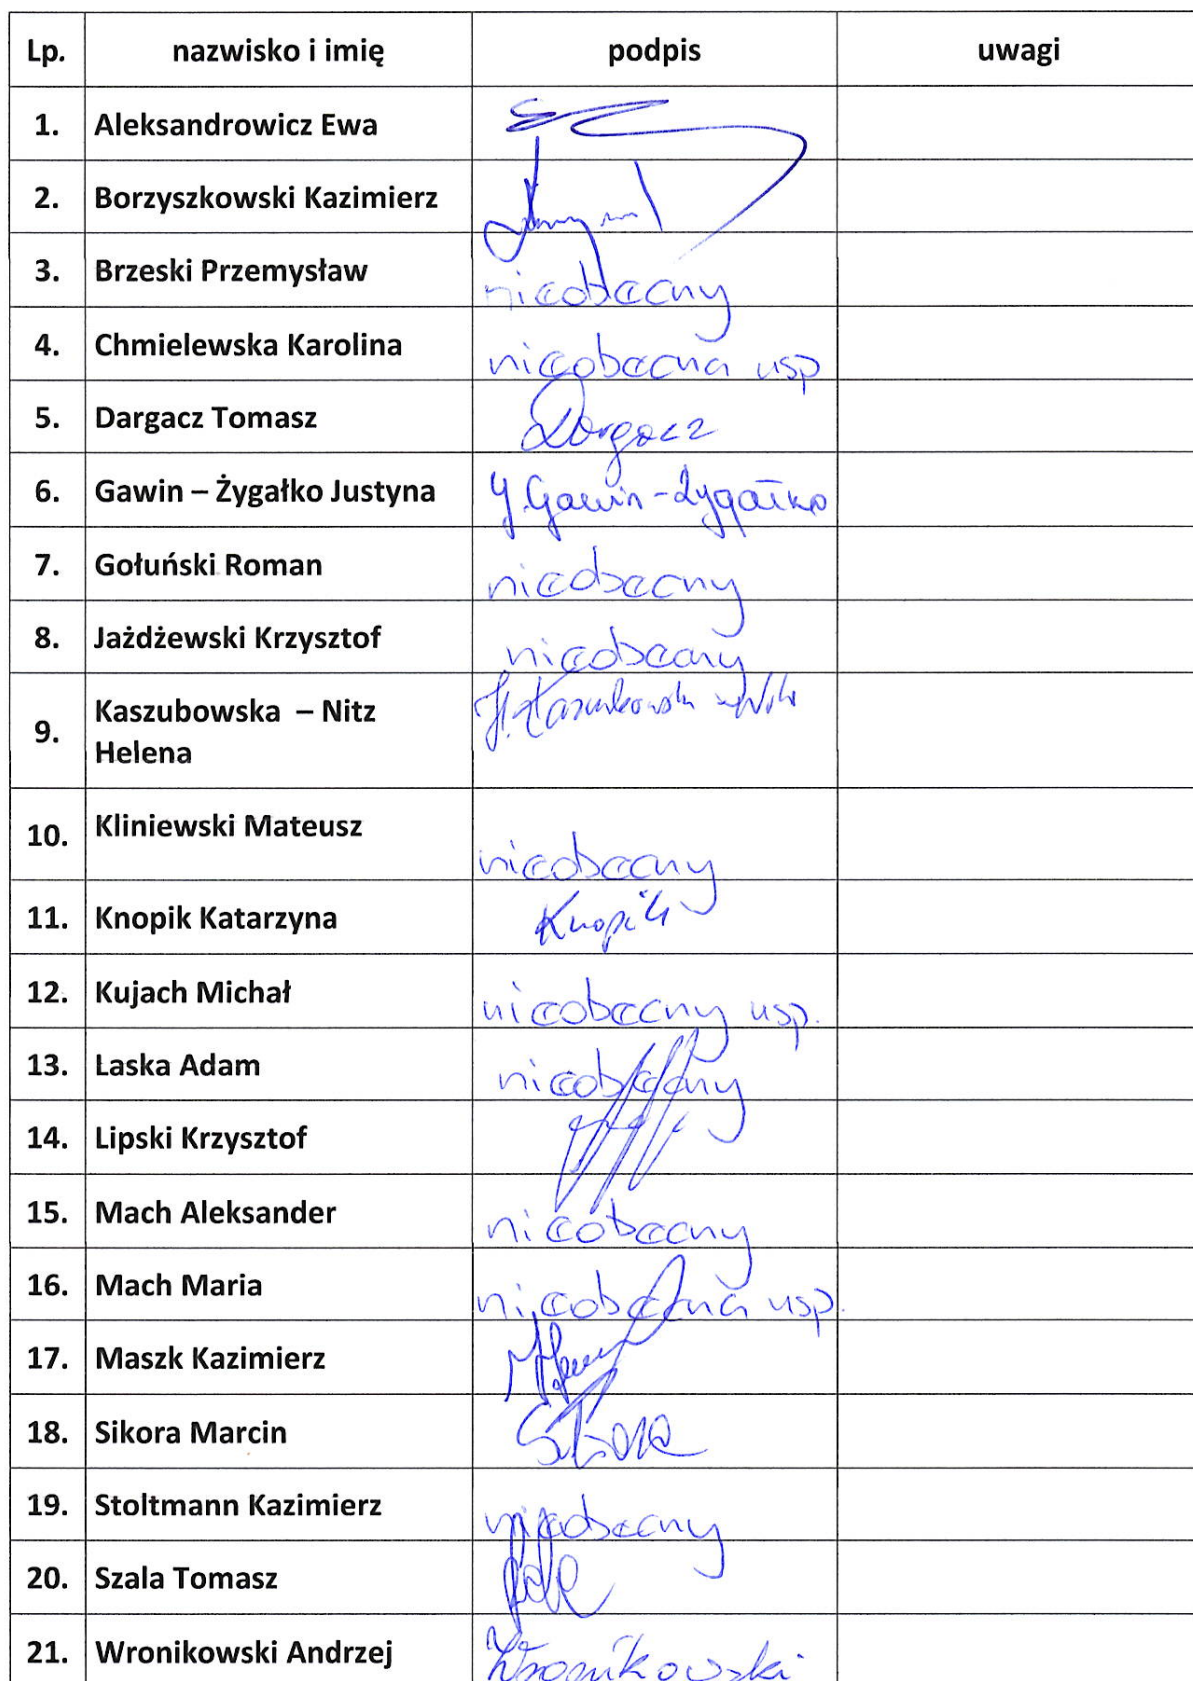 Lp. nazwisko i imię podpis uwagi
1. Aleksandrowicz Ewa
2. Borzyszkowski Kazimierz
3. Brzeski Przemysław nieobecny
4. Chmielewska Karolina nieobecna usp
5. Dargacz Tomasz Dargacz
6. Gawin – Żygałko Justyna J. Gawin-Żygałko
7. Gołuński Roman nieobecny
8. Jażdżewski Krzysztof nieobecny
9. Kaszubowska – Nitz H. Kaszubowska
Helena
10. Kliniewski Mateusz nieobecny
11. Knopik Katarzyna Knopik
12. Kujach Michał nieobecny usp.
13. Laska Adam nieobecny
14. Lipski Krzysztof
15. Mach Aleksander nieobecny
16. Mach Maria nieobecna usp.
17. Maszk Kazimierz
18. Sikora Marcin Sikora
19. Stoltmann Kazimierz nieobecny
20. Szala Tomasz
21. Wronikowski Andrzej Wronikowski